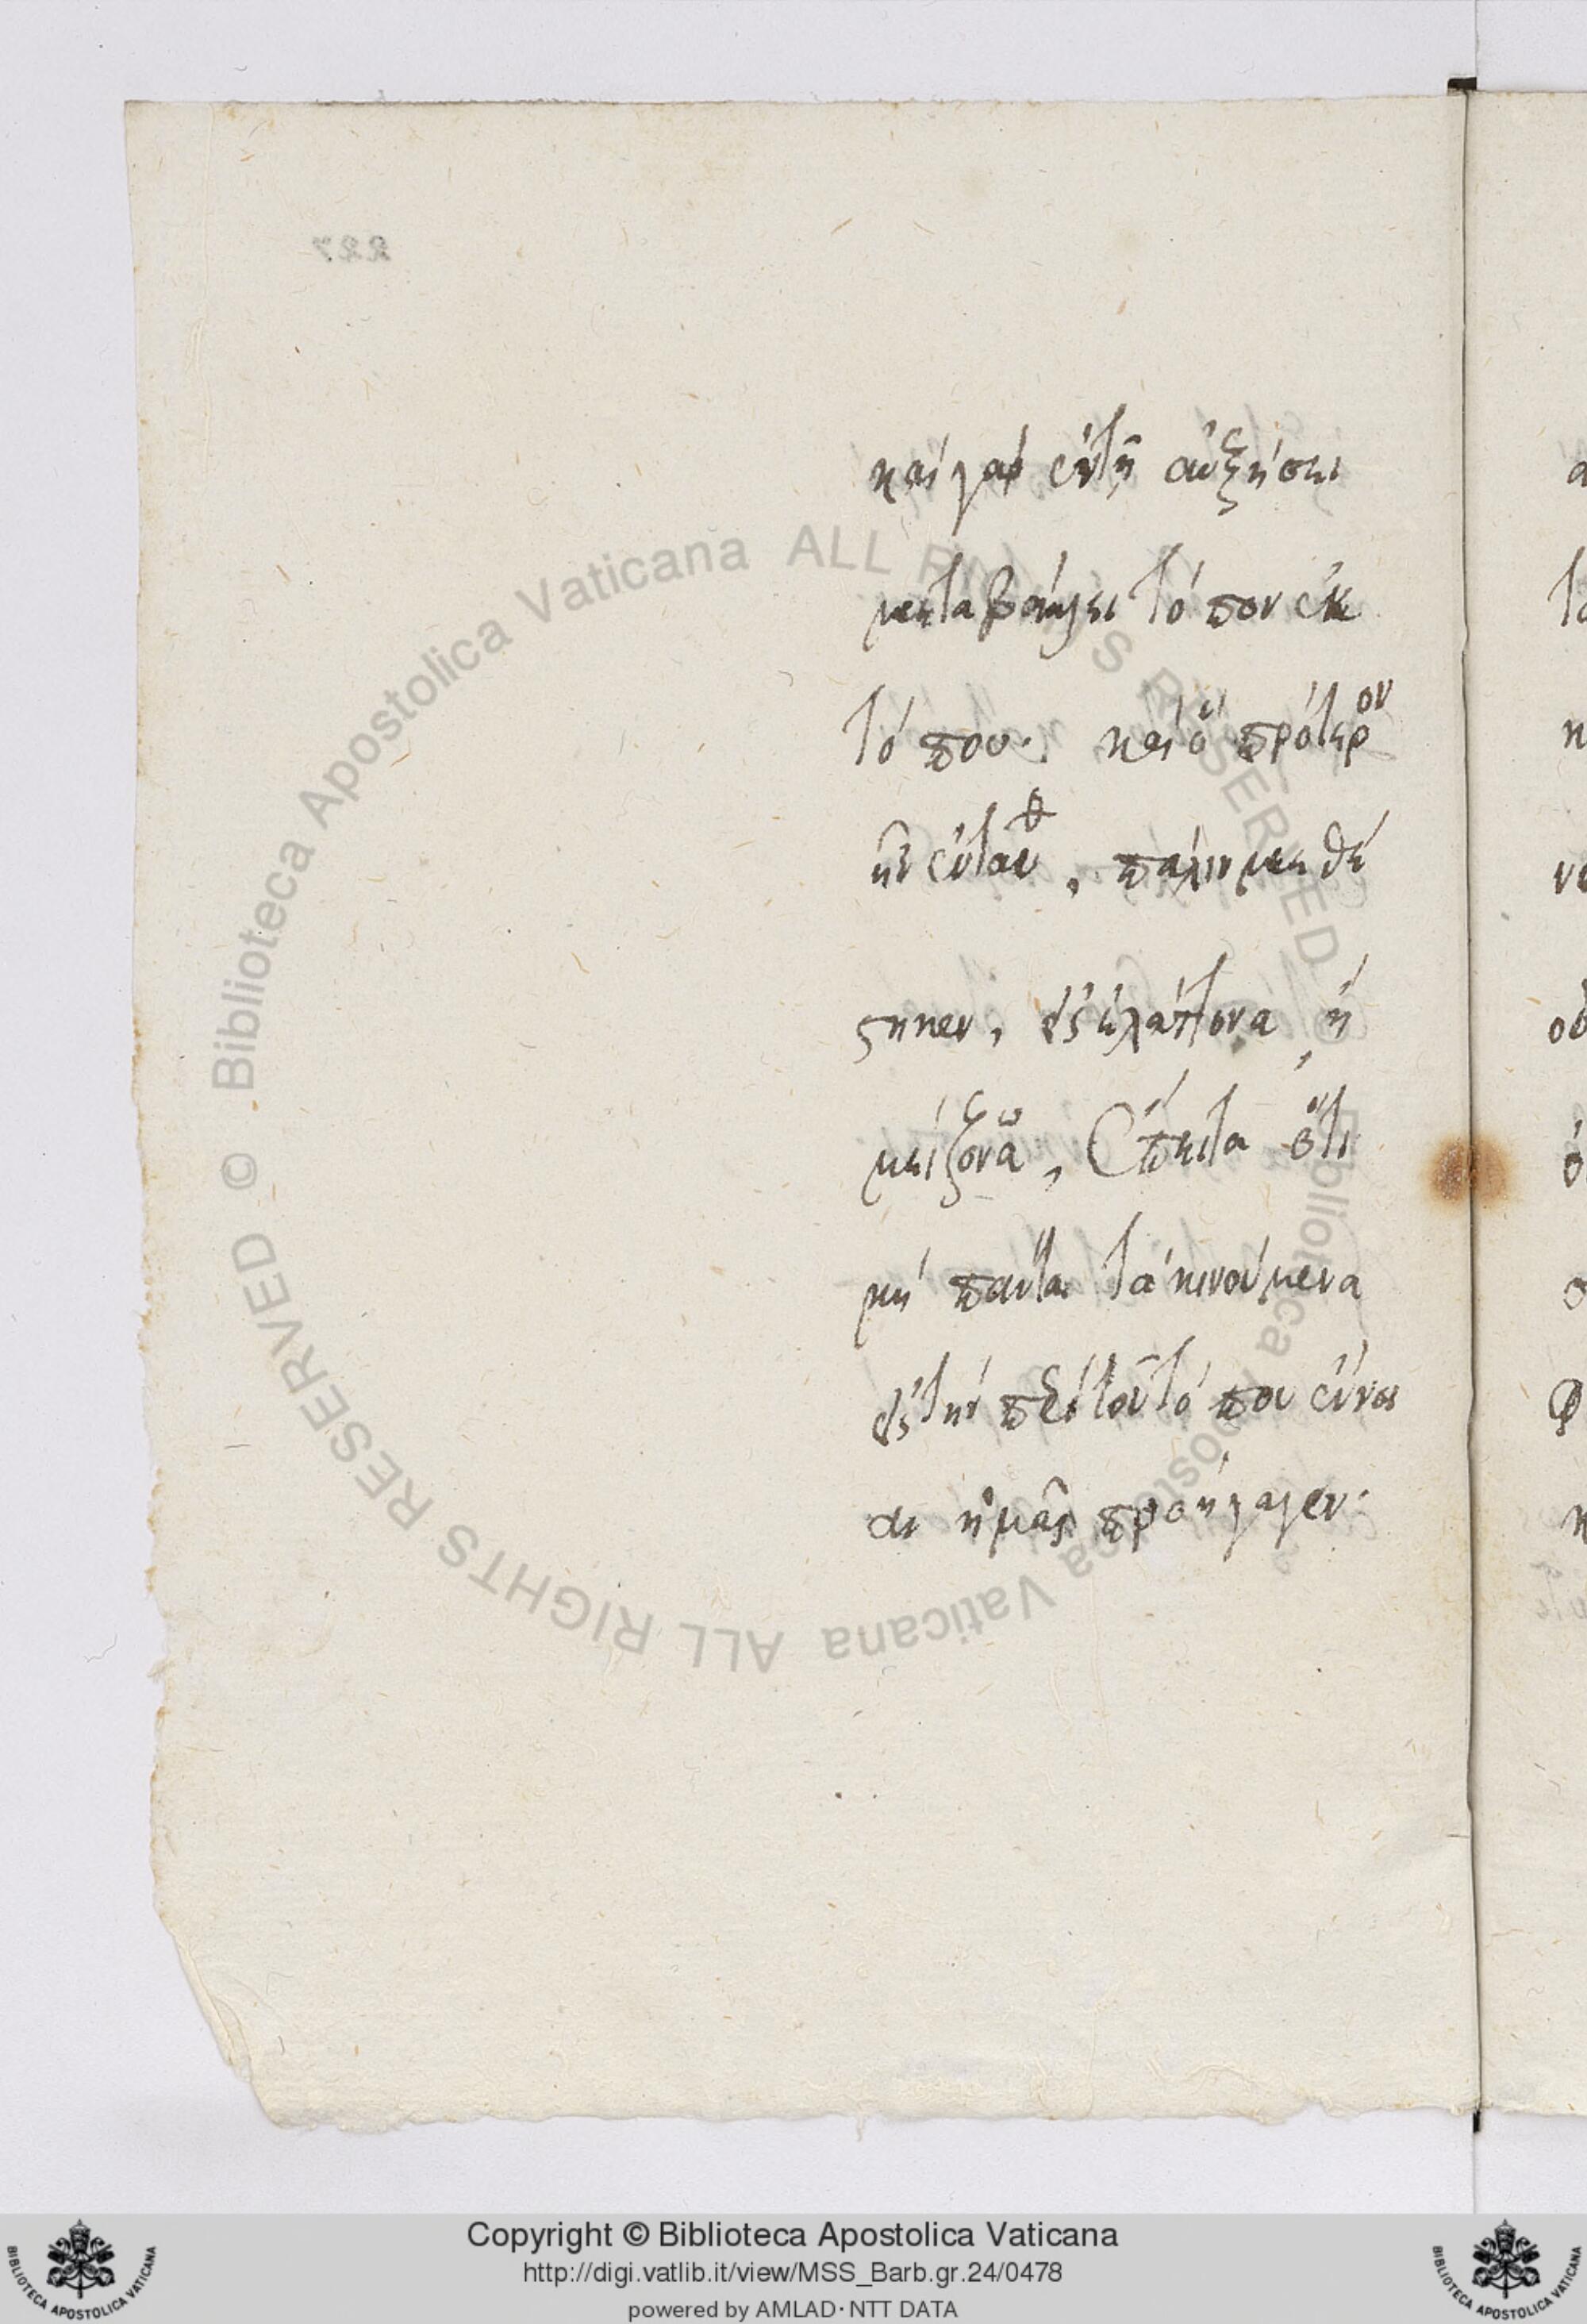 καὶ γὰρ ἐν τῇ αὐξήσει
μεταβάλλει τόπον ἐκ
τόπου. καὶ ὃ πρότερον
ἦν ἐνταῦθ, πάλιν μεθέ
στηκεν, εἰς ἐλάττονα, ἢ
μείζονα, ἔπειτα ὅτι
μὴ πάντα τὰ κινούμενα
εἰς τὴν περὶ τοῦ τόπου ἔννοι
αν ἡμᾶς προήγαγεν.
227
© Biblioteca Apostolica Vaticana ALL RIGHTS RESERVED
© Biblioteca Apostolica Vaticana ALL RIGHTS RESERVED
Copyright © Biblioteca Apostolica Vaticana
http://digi.vatlib.it/view/MSS_Barb.gr.24/0478
powered by AMLAD·NTT DATA
BIBLIOTECA APOSTOLICA VATICANA
BIBLIOTECA APOSTOLICA VATICANA